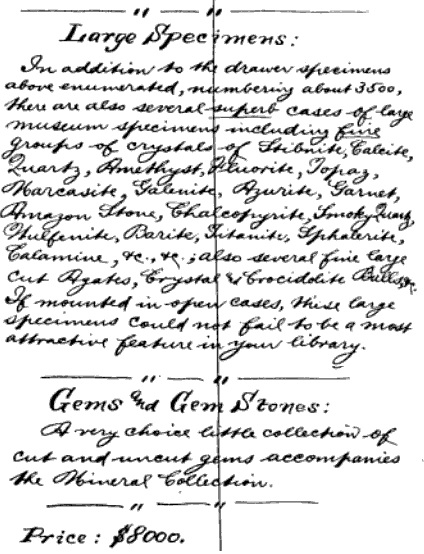 Large Specimens:
In addition to the drawer specimens
above enumerated, numbering about 3500,
there are also several superb cases of large
museum specimens including fine
groups of crystals of Stibnite, Calcite,
Quartz, Amethyst, Fluorite, Topaz,
Marcasite, Galenite, Azurite, Garnet,
Amazon Stone, Chalcopyrite, Smoky Quartz,
Wulfenite, Barite, Titanite, Sphalerite,
Calamine, &c., &c.; also several fine large
cut Agates, Crystal and Crocidolite Balls, &c.
If mounted in open cases, these large
specimens could not fail to be a most
attractive feature in your library.
Gems and Gem Stones:
A very choice little collection of
cut and uncut gems accompanies
the Mineral Collection.
Price: $8000.